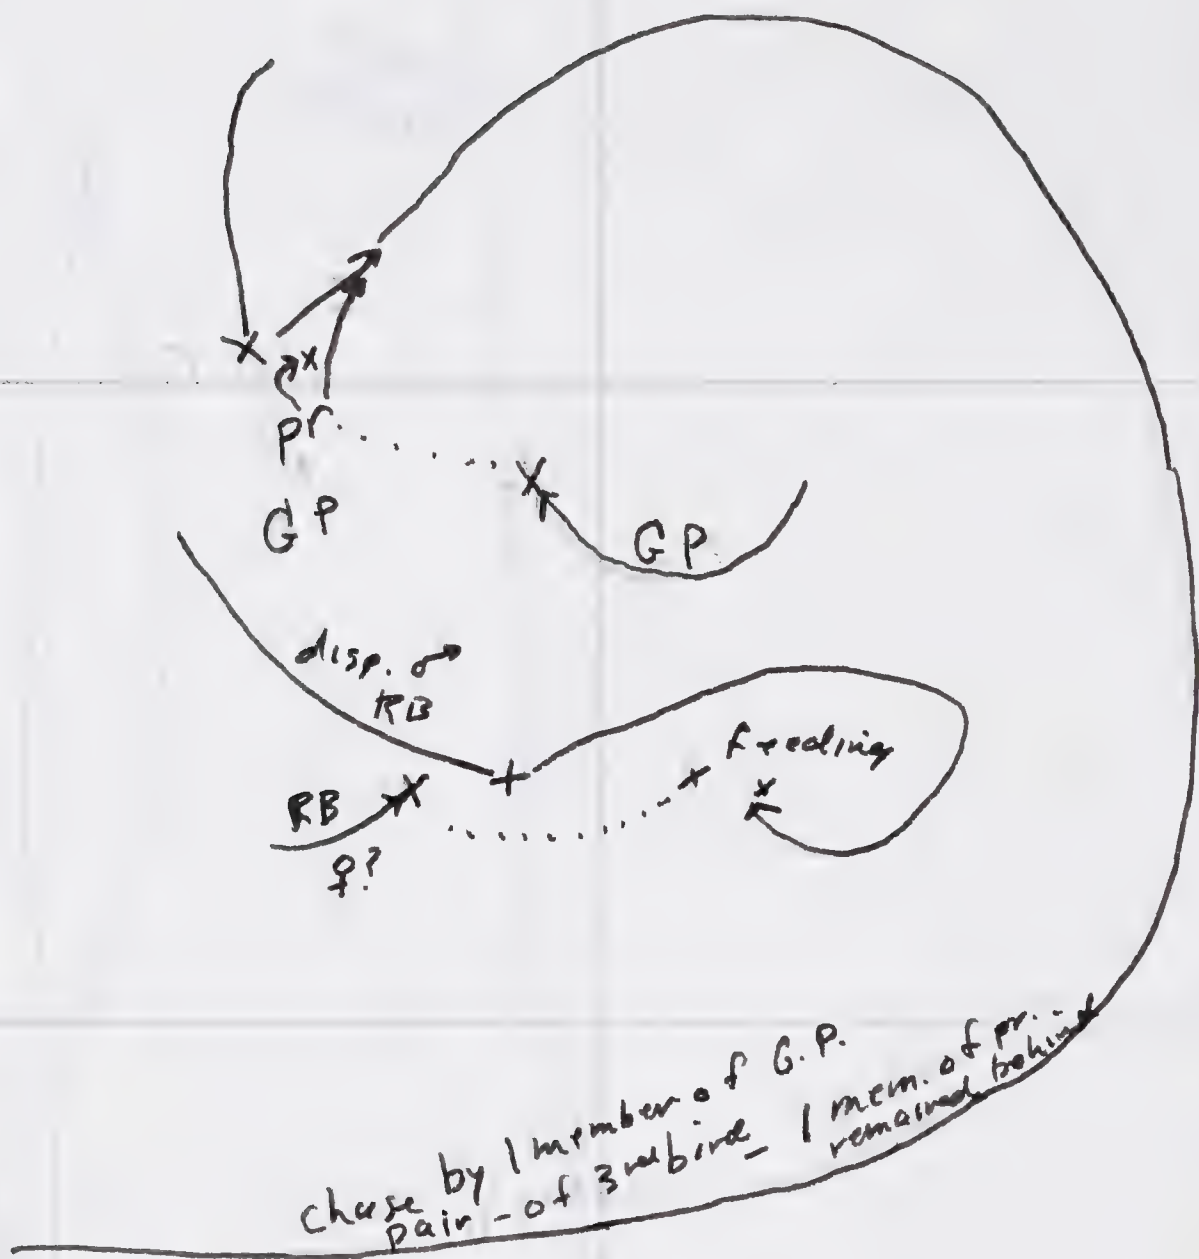 x
pr
GP
GP
disp. ♂
RB
feeding
x
RB
♀?
chase by 1 member of G.P.
pair - of 3rd bird - 1 mem. of pr..
remained behind